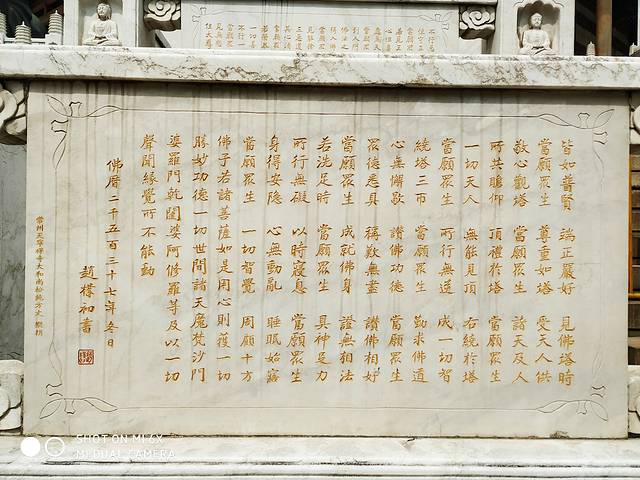 皆如普賢 端正嚴好 見佛塔時
當願眾生 尊重如塔 受天人供
敬心觀塔 當願眾生 諸天及人
所共瞻仰 頂禮於塔 當願眾生
一切天人 無能見頂 右繞於塔
當願眾生 所行無逆 成一切智
繞塔三帀 當願眾生 勤求佛道
心無懈歇 讚佛功德 當願眾生
眾德悉具 稱歎無盡 讚佛相好
當願眾生 成就佛身 證無相法
若洗足時 當願眾生 具神足力
所行無礙 以時寢息 當願眾生
身得安隱 心無動亂 睡眠始寤
當願眾生 一切智覺 周顧十方
佛子若諸菩薩如是用心則獲一切
勝妙功德一切世間諸天魔梵沙門
婆羅門乾闥婆阿修羅等及以一切
聲聞緣覺所不能動
佛曆二千五百三十七年冬日
趙樸初書
常州天寧禪寺大和尚松純方丈
SHOT ON MI 6X
MI DUAL CAMERA